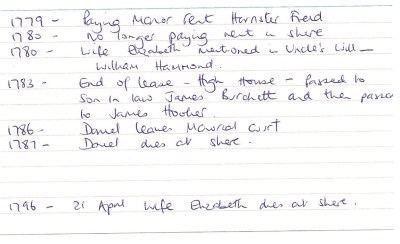 1779 - Paying Manor rent Hamster Freed
1780 - No longer paying rent in shere
1780 - Wife Elizabeth mentioned in Uncle's Will -
William Hammond.
1783 - End of lease - High House - passed to
Son in law James Burchett and then passed
to James Hooker.
1786 - Daniel leaves Manorial Court
1787 - Daniel dies at shere.
1796 - 21 April wife Elizabeth dies at shere.